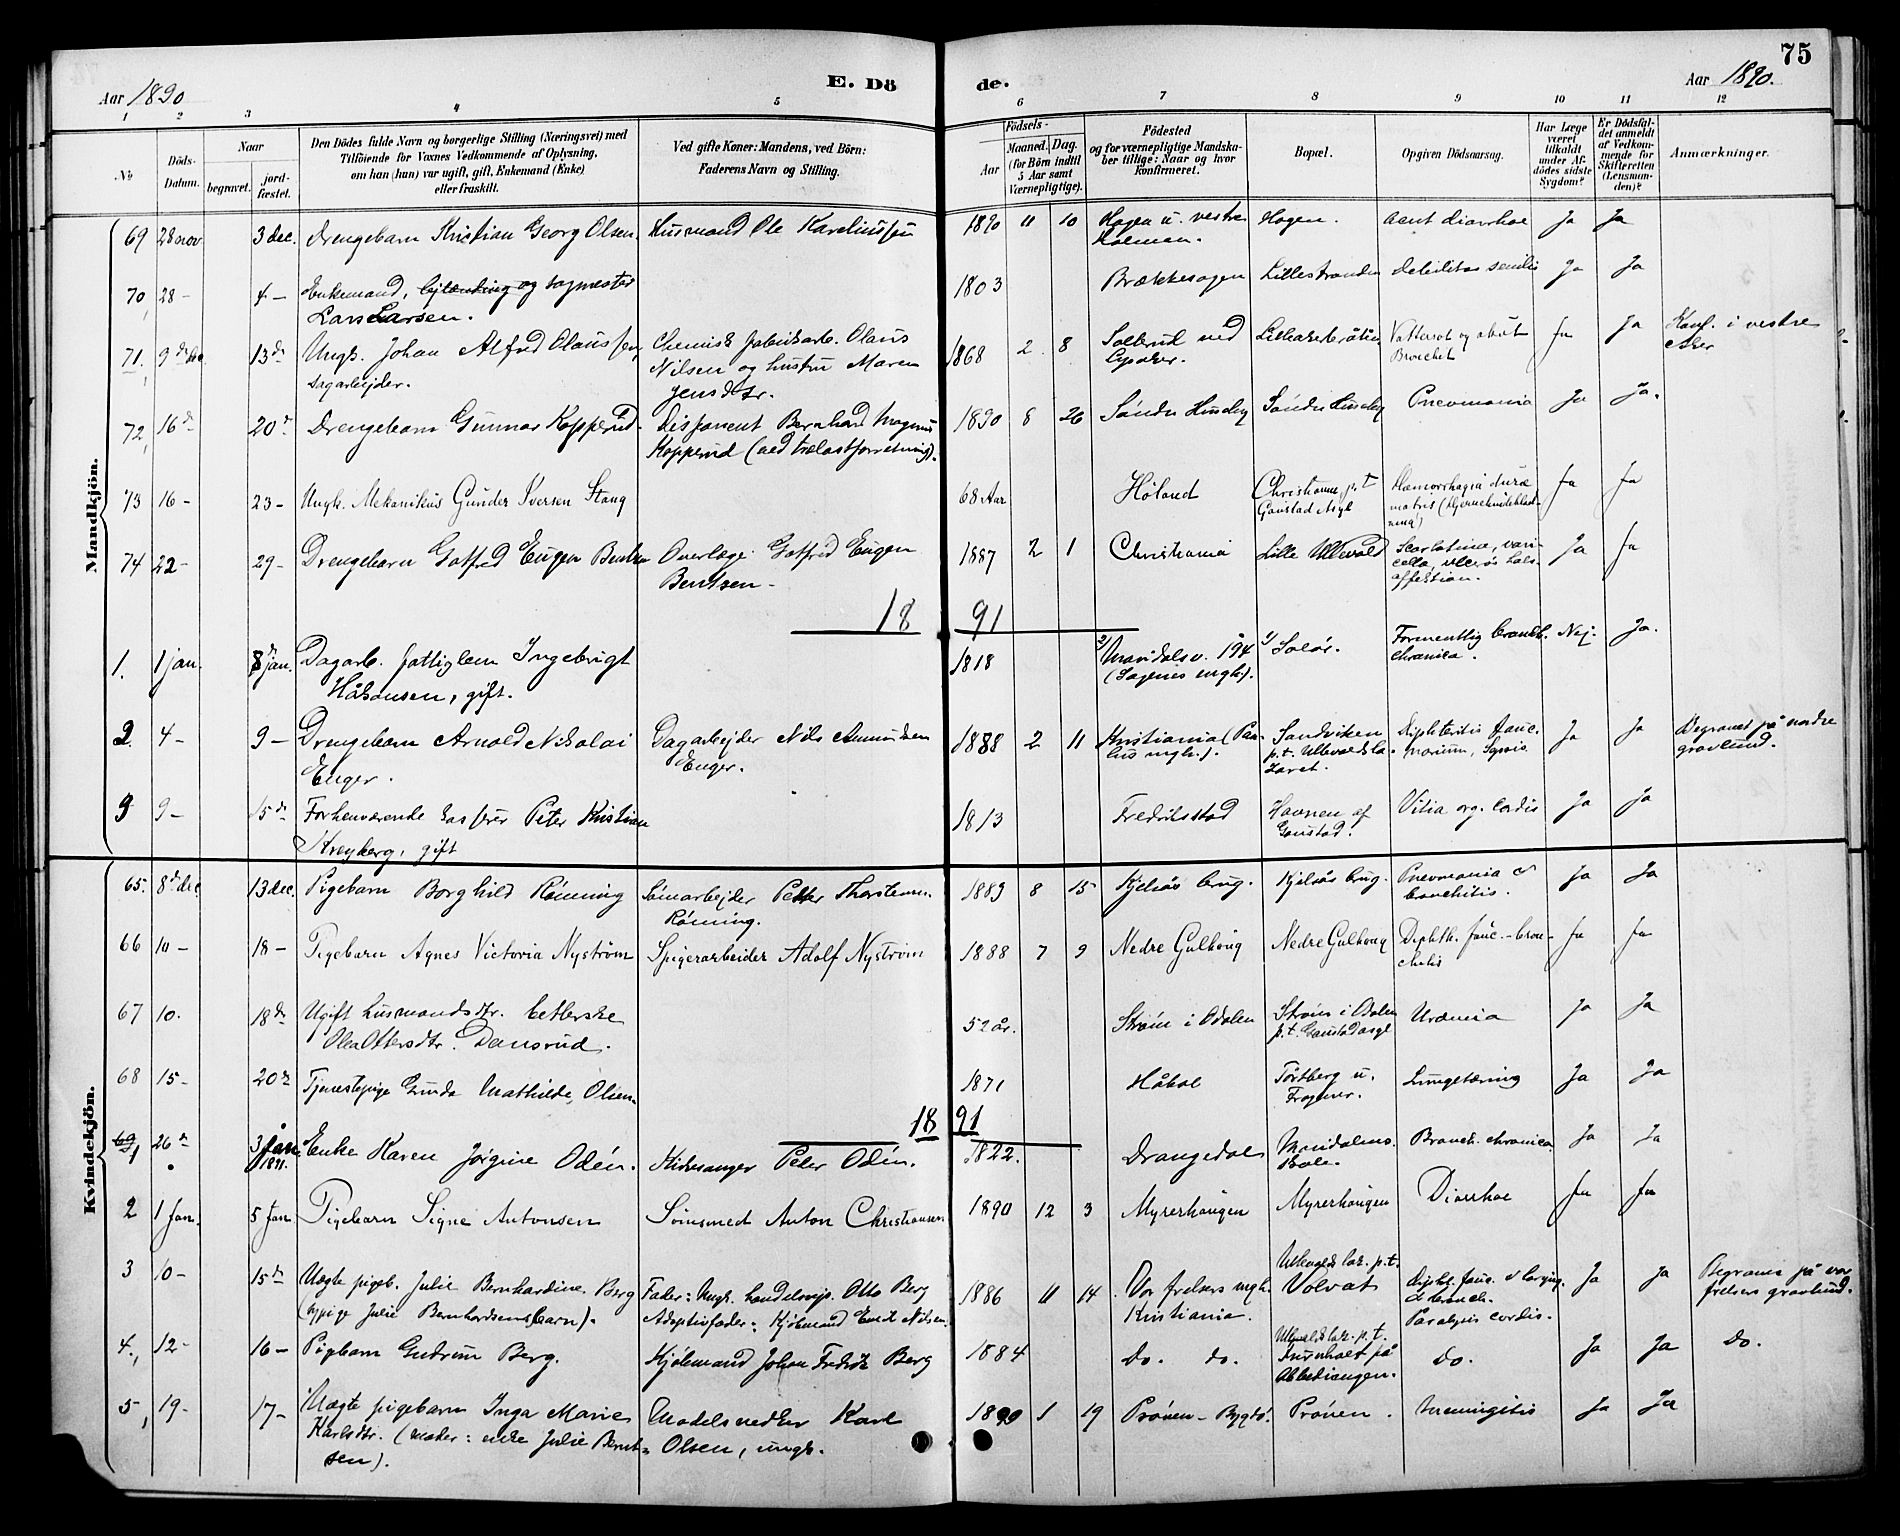 75
Aar 1890
E. Dö
de.
Aar 1890.
1 2 3 4 5 6 7 8 9 10 11 12
No
Döds-Datum.
Naar
begravet.
jordfæstet.
Den Dödes fulde Navn og borgerlige Stilling (Næringsvei) med
Tilföiende for Voxnes Vedkommende af Oplysning,
om han (hun) var ugift, gift, Enkemand (Enke)
eller fraskilt.
Ved gifte Koner: Mandens, ved Börn:
Faderens Navn og Stilling.
Födsels-
Aar
Maaned. Dag.
(for Börn indtil
5 Aar samt
Værnepligtige).
Födested
og for værnepligtige Mandska-
ber tillige: Naar og hvor
konfirmeret.
Bopæl.
Opgiven Dödsaarsag.
Har Læge
været
tilkaldt
under Af-
dödes sidste
Sygdom?
Er Dödsfal-
det anmeldt
af Vedkom-
mende for
Skifteretten
(Lensman-
den)?
Anmærkninger.
Mandkjön.
69 28 nov 3 dec. Drengebarn Kristian Georg Olsen. Husmand Ole Kareliussen 1890 11 10 Hagen u. vestre Hagen. acut diarrhoe Ja Ja
Holmen.
70, 28 - 4 - Enkemand, lejlænding og sagmester 1803 Brækkesagen Lillestranden debilitas senilis Ja Ja
Lars Larsen.
71. 9de dec 13de Ungk. Johan Alfred Olaussen, Chemisk fabrikarb. Olaus 1868 2 8 Sollerud ved Vattersot og akut Ja Ja Konf. i vestre
sagarbejder. Nilsen og hustru Maren Lysaker. Bronchit Aker
Jensdtr.
72, 16de 20de Drengebarn Gunnar Kopperud. Disponent Bernhard Magnus 1890 8 26 Söndre Huseby Söndre Huseby Pneumonia Ja Ja.
Kopperud (ved trælastforretning).
73 16 - 23 - Ungk. Mekanikus Gunder Iversen Stang 68 Aar Höland Christiania p.t. Hæmorrhagia duræ Ja Ja
Gaustad Asyl matris (Hjernehindeblød-
ning)
74 22 - 29 - Drengebarn Gotfred Eugen Bentzen Overlæge Gotfred Eugen 1887 2 1 Christiania Lille Ullevold Scarlatina, vari- Ja Ja
Bentzen - cella, ulcerøs hals-
affektion.
18 91
1. 1 jan. 8de jan. Dagarb. fattiglem Ingebrigt 1818 2) Maridalsv. 194 1) Solör. Formentlig bronch. Nej. Ja.
Håkonsen, gift. (Sagenes mgh.). chronica.
2. 4 - 9 - Drengebarn Arnold Nikolai Dagarbejder Nils Amundsen 1888 2 11 Kristiania (Pau- Sandviken Diphteritis fauc. Ja Ja Begravet på nordre
Enger. Enger. lus mgh.). p.t. Ullevolds la- narium, gravlund.
zaret.
3 9 - 15de Forhenværende Peter Kristian 1813 Fredriksstad Havnen af Vitia org. cordis Ja Ja
Kreyberg, gift Gaustad.
Kvindekjön.
65. 8de dec 13 dec. Pigebarn Borghild Rönning Sömarbejder Petter Thorstensen 1889 8 15 Kjelsås brug. Kjelsås brug. Pneumonia & Ja Ja
Rönning. bronchitis.
66 10 - 18 - Pigebarn Agnes Victoria Nyström Spigerarbeider Adolf Nyström 1888 7 9 Nedre Gulhoug Nedre Gulhoug Diphth. fauc. - bron- Ja Ja
chitis
67 10. 18de Ugift husmandsdtr. betlerske 52 år. Ström i Odalen Ström i Odalen Urämia Ja Ja
Olea Ottersdtr. Dansrud. p.t. Gaustad asyl
68 15 - 20de Tjenestepige Gunda Mathilde Olsen. 1871 Håbøl Törtberg u. Lungetæring Ja Ja
Frogner.
18 91
69 1 26de 3 Jan. 1891. Enke Karen Jörgine Odén. Kirkesanger Peter Odén. 1822. Drangedal Maridalens Bronch. chronica Ja Ja
Skole.
2 1 Jan. 5 Jan. Pigebarn Signe Antonsen Sömsmed Anton Christiansen 1890 12 3 Myrerhaugen Myrerhaugen Diarrhoe Ja Ja
3 10 - 15de Uægte pigeb. Julie Bernhardine Berg Fader: Ungk. handelsrejs. Otto Berg 1886 11 14 Vor frelsers mgh. Ullevolds laz. p.t. Diphth. fauc. & laryng. Ja Ja Begravet på vor
(sypige Julie Bernhardsens barn). Adoptivfader: Kjöbmand Emil Nilsen Kristiania. Volvat & bronch. frelsers gravlund.
Paralysis cordis.
4., 12 - 16 - Pigebarn Gudrun Berg. Kjöbmand Johan Fredrik Berg 1884 Do. Do. Ullevolds laz. p.t. Do. Ja Ja Do.
på
Abbediengen.
5, 19 - 17 - Uægte pigebarn Inga Marie Karl 1890 1 19 Prönen - Bygdö. Prönen. Meningitis Ja Ja
Karlsdtr. (moder: enke Julie Bernt- Olsen, ungk.
sen).